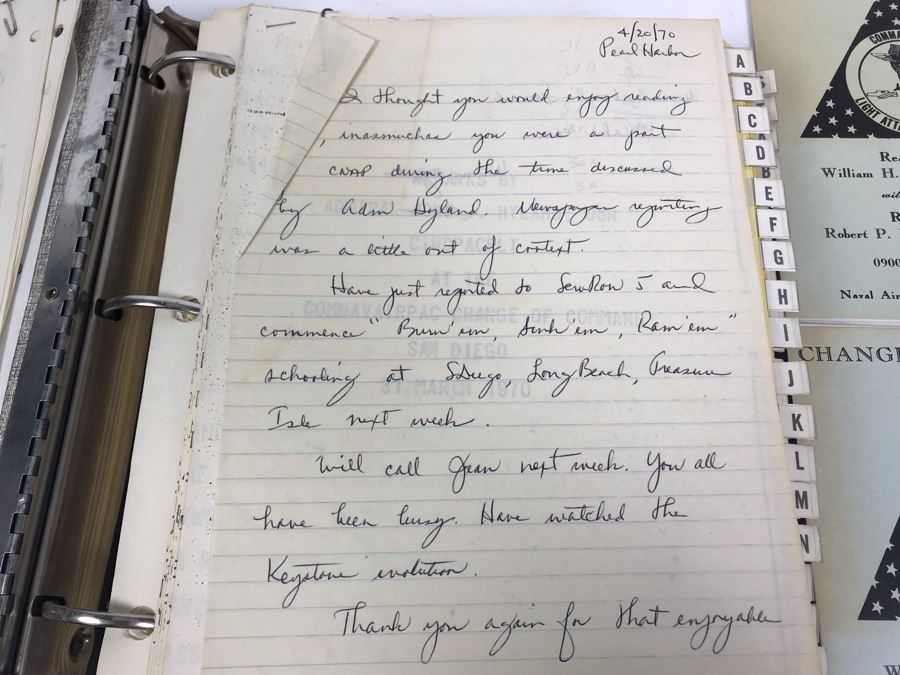 4/20/70
Pearl Harbor
I thought you would enjoy reading
, inasmuchas you were a part
CNAP during the time discussed
by Adm Hyland. Newspaper reporting
was a little out of context.
Have just reported to ServRon 5 and
commence "Burn'em, Sink'em, Ram'em"
schooling at SDiego, Long Beach, Treasure
Isle next week.
Will call Jean next week. You all
have been busy. Have watched the
Keystone evolution.
Thank you again for that enjoyable
REMARKS BY
CINCPACFLT
AT THE
COMNAVAIRPAC CHANGE OF COMMAND
SAN DIEGO
31 MARCH 1970
A
B
C
D
E
F
G
H
I
J
K
L
M
N
R
COMMA
LIGHT ATT
Rea
William H.
wil
R
Robert P.
0900
Naval Air
CHANGE